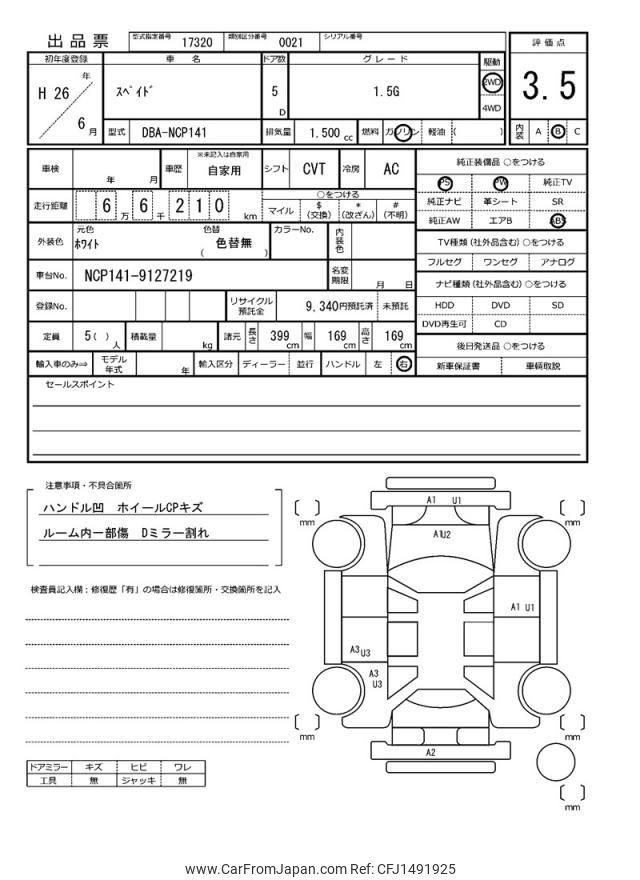 出品票
型式指定番号 17320 類別区分番号 0021 シリアル番号
評価点
3.5
内装 A B C
初年度登録 車名 ドア数 グレード 駆動
H 26 年 6 月
ｽﾍﾟｲﾄﾞ 5 D 1.5G 2WD
4WD
型式 DBA-NCP141 排気量 1.500 cc 燃料 ガソリン 軽油 ( )
車検 年 月 車歴 ※未記入は自家用 自家用 シフト CVT 冷房 AC
走行距離 6 6 万 千 2 1 0 km
○をつける
マイル $ (交換) * (改ざん) # (不明)
外装色 元色 ﾎﾜｲﾄ 色替 色替無 ( ) カラーNo. 内装色
車台No. NCP141-9127219 名変期限 月 日
登録No. リサイクル預託金 9,340円預託済 未預託
定員 5( ) 人 積載量 kg 諸元 長さ 399 cm 幅 169 cm 高さ 169 cm
輸入車のみ⇒ モデル年式 年 輸入区分 ディーラー 並行 ハンドル 左 右
純正装備品 ○をつける
PS PW 純正TV
純正ナビ 革シート SR
純正AW エアB ABS
TV種類(社外品含む)○をつける
フルセグ ワンセグ アナログ
ナビ種類(社外品含む)○をつける
HDD DVD SD
DVD再生可 CD
後日発送品 ○をつける
新車保証書 車輌取説
セールスポイント
注意事項・不具合箇所
ハンドル凹 ホイールCPキズ
ルーム内一部傷 Dミラー割れ
検査員記入欄：修復歴「有」の場合は修復箇所・交換箇所を記入
ドアミラー キズ ヒビ ワレ
工具 無 ジャッキ 無
A1 U1
mm
mm
A1U2
A1 U1
A3 U3
A3
U3
mm
mm
A2
mm
www.CarFromJapan.com Ref: CFJ1491925